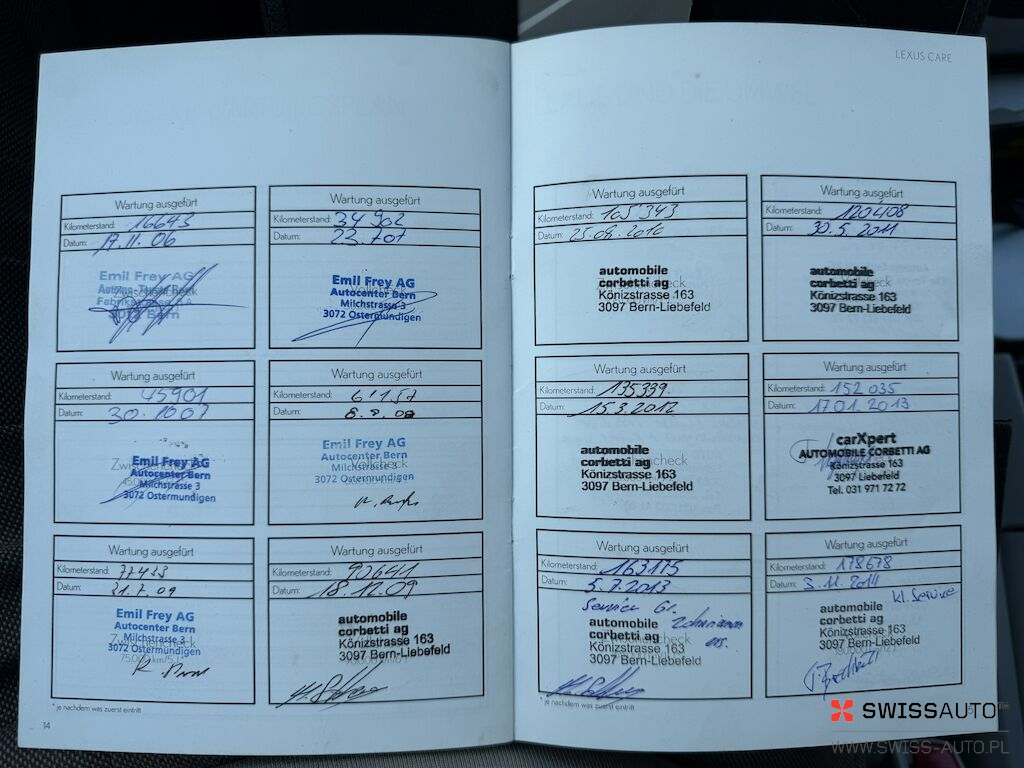 LEXUS CARE
Wartung ausgeführt
Kilometerstand: 16643
Datum: 17.11.06
Emil Frey AG
Bern
Wartung ausgeführt
Kilometerstand: 34902
Datum: 23.7.07
Emil Frey AG
Autocenter Bern
Milchstrasse 3
3072 Ostermundigen
Wartung ausgeführt
Kilometerstand: 45901
Datum: 30.10.07
Emil Frey AG
Autocenter Bern
Milchstrasse 3
3072 Ostermundigen
Wartung ausgeführt
Kilometerstand:
Datum:
Emil Frey AG
Autocenter Bern
Milchstrasse 3
3072 Ostermundigen
Wartung ausgeführt
Kilometerstand:
Datum: 21.7.09
Emil Frey AG
Autocenter Bern
Milchstrasse 3
3072 Ostermundigen
Wartung ausgeführt
Kilometerstand: 90641
Datum: 18.12.09
automobile
corbetti ag
Könizstrasse 163
3097 Bern-Liebefeld
* je nachdem was zuerst eintritt
14
Wartung ausgeführt
Kilometerstand: 105'343
Datum: 25.08.2010
automobile
corbetti ag
Könizstrasse 163
3097 Bern-Liebefeld
Wartung ausgeführt
Kilometerstand: 120408
Datum: 30.5.2011
automobile
corbetti ag
Könizstrasse 163
3097 Bern-Liebefeld
Wartung ausgeführt
Kilometerstand: 135399
Datum: 15.3.2012
automobile
corbetti ag
Könizstrasse 163
3097 Bern-Liebefeld
Wartung ausgeführt
Kilometerstand: 152035
Datum: 17.01.2013
carXpert
AUTOMOBILE CORBETTI AG
Könizstrasse 163
3097 Liebefeld
Tel. 031 971 72 72
Wartung ausgeführt
Kilometerstand: 163175
Datum: 5.7.2013
Service Gr.
automobile
corbetti ag
Könizstrasse 163
3097 Bern-Liebefeld
Wartung ausgeführt
Kilometerstand: 178678
Datum: 3.11.2014
kl. Service
automobile
corbetti ag
Könizstrasse 163
3097 Bern-Liebefeld
* je nachdem was zuerst eintritt
SWISSAUTO
WWW.SWISS-AUTO.PL